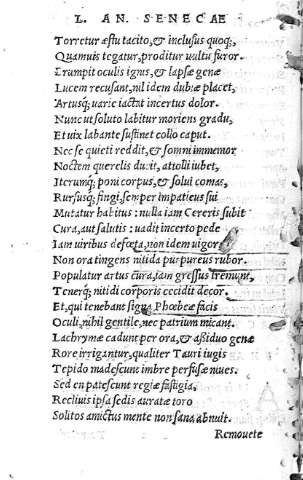 L. AN. SENECAE
Torretur æstu tacito, & inclusus quoq;,
Quamuis tegatur, proditur uultu furor.
Erumpit oculis ignis, & lapsæ genæ
Lucem recusant, nil idem dubiæ placet,
Artusq; uarie iactat incertus dolor.
Nunc ut soluto labitur moriens gradu,
Et uix labante sustinet collo caput.
Nec se quieti reddit, & somni immemor
Noctem querelis ducit, attolli iubet,
Iterumq; poni corpus, & solui comas,
Rursusq; fingi, semper impatiens sui
Mutatur habitus: nulla iam Cereris subit
Cura, aut salutis: uadit incerto pede
Iam uiribus defecta, non idem uigor,
Non ora tingens nitida purpureus rubor.
Populatur artus cura, iam gressus tremunt,
Tenerq; nitidi corporis cecidit decor.
Et, qui tenebant signa Phœbeæ facis
Oculi, nihil gentile, nec patrium micant.
Lachrymæ cadunt per ora, & assiduo genæ
Rore irrigantur, qualiter Tauri iugis
Tepido madescunt imbre perfusæ niues.
Sed en patescunt regiæ fastigia,
Recliuis ipsa sedis auratæ toro
Solitos amictus mente non sana abnuit.
Remouete